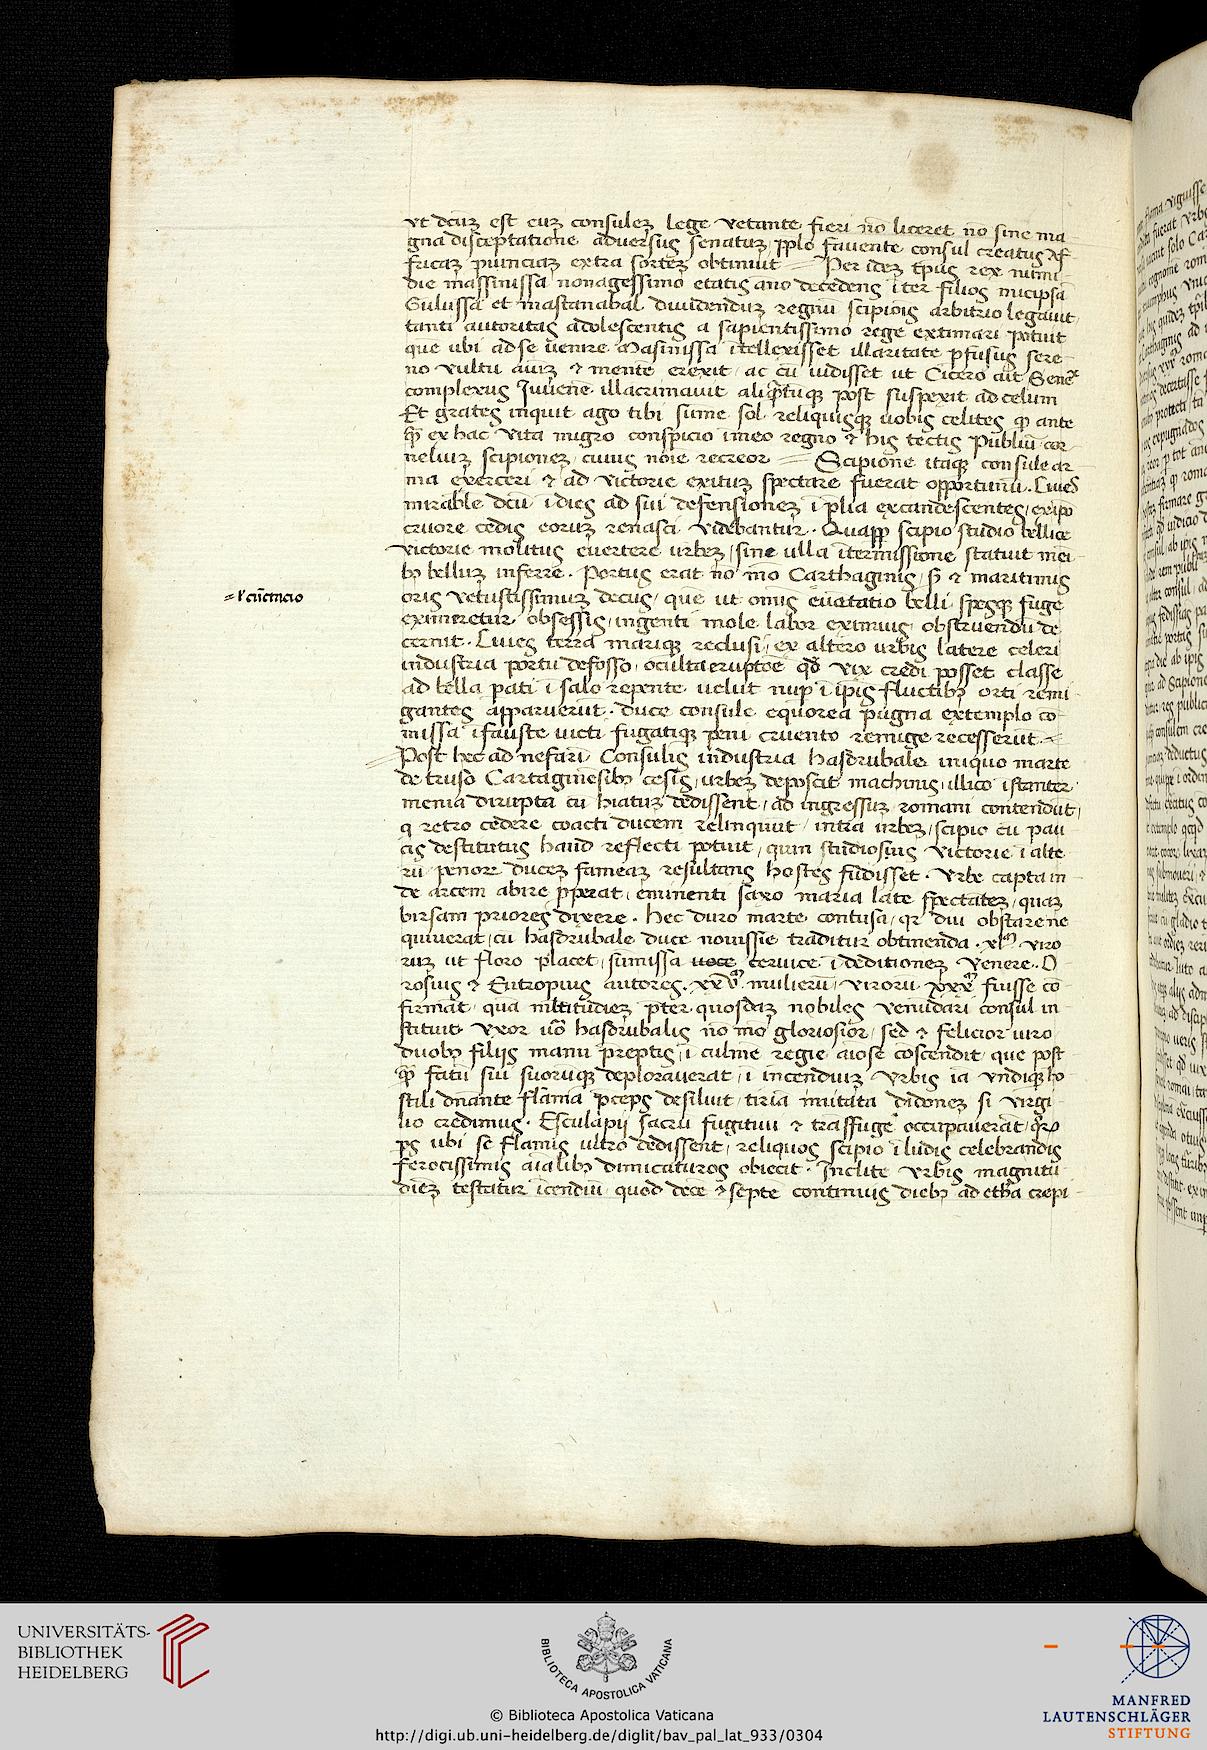 vt dcūʒ est euʒ consuleʒ lege vetante fieri nō liceret nō sine ma
gna disceptatione adversus senatuʒ pplo favente consul creatus Af
fricaʒ puinciaʒ extra sorteʒ obtinuit = Per ideʒ tp̄us rex numi
die massinissa nonagessimo etatis āno decedens īter filios micipsā
Gulussā et mastanabal dividenduʒ regnū scipiōis arbitrio legavit
tanti autoritas adolescentis a sapientissimo rege extimari potuit
que ubi ad se venire Masinissa ītellexisset illaritate pfusus sere
no vultu āuiʒ & mente erexit ac cū vidisset ut Cicero ait Sene
complexus Juvenē illacrimavit aliqtūqʒ post suspexit ad celum
Et grates inquit ago tibi sūme sol reliquisqʒ vobis celites qȝ ante
qȝ ex hac vita migro conspicio ī meo regno & his tectis Publiū cor
neliuʒ scipioneʒ cuius noīe recreor = Scipione itaqʒ consule ar
ma exerceri & ad victorie exituʒ spectare fuerat opportunū. Cives
mirabile dcū ī dies ad sui defensioneʒ ī plia excandescentes
cruore cedis eoruʒ renasci videbantur. Quapp scipio studio bellice
victorie molitus evertere urbeʒ sine ulla ītermissione statuit
bȝ belluʒ inferre. Portus erat nō mō Carthaginis sʒ & maritimis
oris vetustissimuʒ decus que ut omīs
= cūctacio
belli spesqʒ fuge
eximeretur obsessis ingenti mole labor eximius obstruendū de
cernit. Cives terra mariqʒ reclusi ex altero urbis latere celeri
industria portu defosso oculta eruptōe qd vix credi posset classe
ad bella pati ī salo repente velut nup ī ipis fluctibȝ orti remi
gantes apparuerūt. duce consule equorea pugna extemplo cō
missa īfauste victi fugatiqʒ peni cruento remige recesserūt
Post hec ad nefarī Consulis industria hasdrubale iniquo marte
detruso Cartaginesibȝ cesis urbeʒ deposcit machinis illico īstanter
menia dirupta cū hiatuʒ dedissent ad ingressuʒ romani contendūt
q retro cedere coacti ducem relinquūt intra urbeʒ scipio cū pau
cis destitutus haud reflecti potuit quin studiosius victorie ī alte
rū penore duceʒ fameaʒ resultans hostes fūdisset. Urbe capta in
de arcem abire pperat eminenti saxo maria late spectateʒ quaʒ
birsam priores dixere. Hec duro marte contusa qr diu obstare ne
quiverat cū hasdrubale duce novissīe traditur obtinenda. xlᵐ viro
ruʒ ut floro placet sūmissa voce cervice ī deditioneʒ venere. O
rosius & Eutropius autores. xxv mulierū virorū xxx fuisse cō
firmāt qua mltitudieʒ pter quosdaʒ nobiles venūdari consul in
stituit Uxor vo hasdrubalis nō mō gloriosior sed & felicior viro
duobȝ filijs manu preptis ī culmē regie aiose coscendit que post
qȝ fatū sui suoruʒqʒ deploraverat ī incendiuʒ urbis iā undiqʒ ho
stili dnante flāma pceps desiluit tiria mutata didoneʒ si virgi
lio credimus. Esculapij sacru fugitivi & trāsfuge occupaverāt
ps ubi se flamis ultro dedissent reliquos scipio ī ludis celebrandis
ferocissimis aīalibȝ dimicaturos obiecit. Inclite urbis magnitu
dieʒ testatur īcendiū quod decē & septē continuis diebȝ ad ethra crepi
UNIVERSITÄTS-
BIBLIOTHEK
HEIDELBERG
BIBLIOTECA APOSTOLICA VATICANA
© Biblioteca Apostolica Vaticana
http://digi.ub.uni-heidelberg.de/diglit/bav_pal_lat_933/0304
MANFRED
LAUTENSCHLÄGER
STIFTUNG